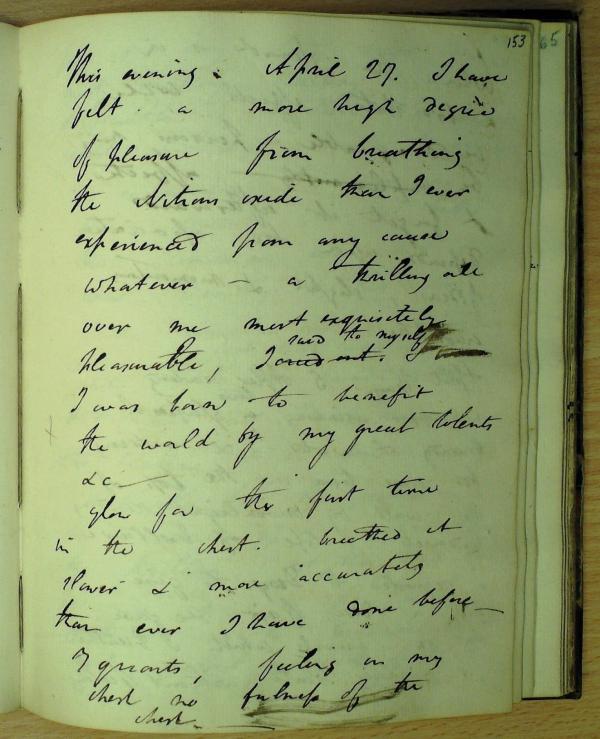 153
65
This evening. April 27. I have
felt a more high degree
of pleasure from breathing
the Nitrous oxide than I ever
experienced from any cause
whatever – a thrilling all
over me most exquisitely
said to myself
pleasurable, I cried out.
I was born to benefit
the world by my great talents
&c –
glow for the first time
in the chest. breathed it
slower & more accurately
than ever I have done before –
7 quarts, feeling in my
chest no fulness of the
chest –